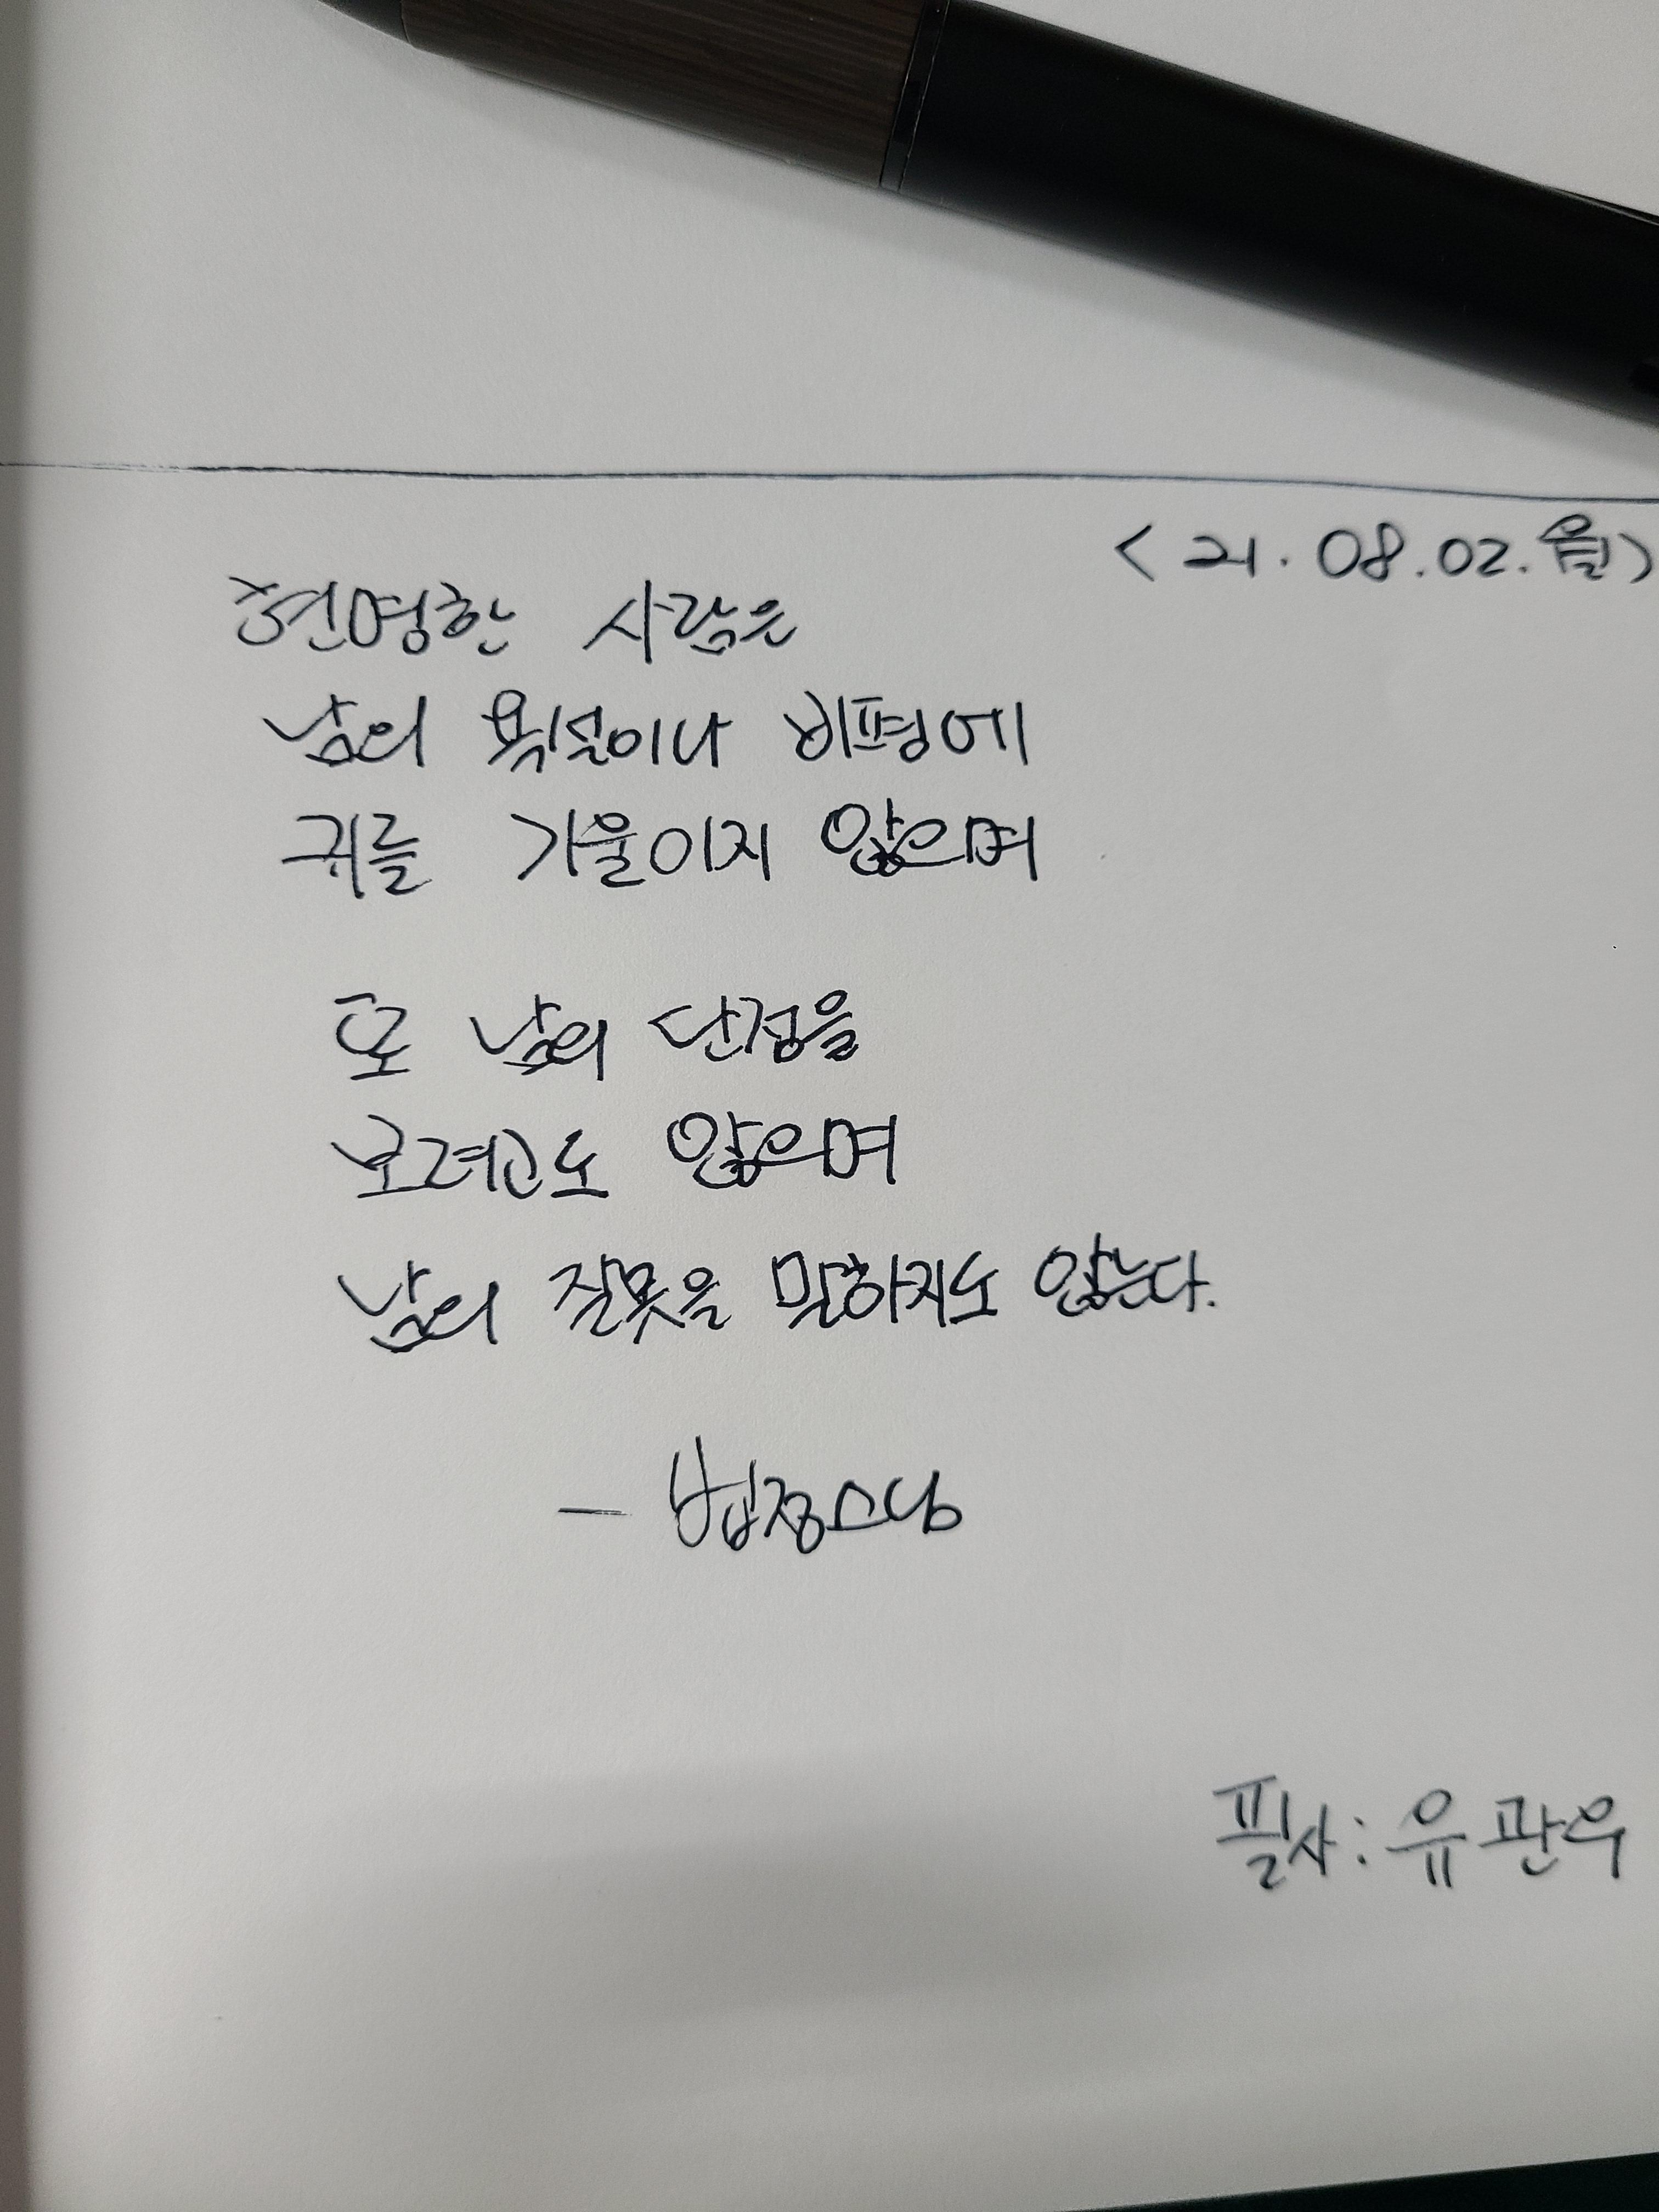 <21.08.02.월>
현명한 사람은
남의 욕설이나 비평에
귀를 기울이지 않으며
또 남의 단점을
보려고도 않으며
남의 잘못을 말하지도 않는다.
- 법정스님
필사: 유관우